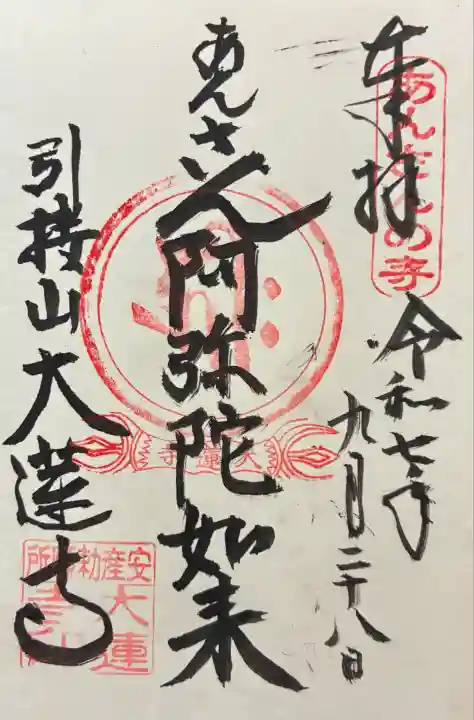 奉拝
あんさんの寺
令和七年
九月二十八日
あんさん阿弥陀如来
大蓮寺
引接山大蓮寺
安産勅願所
大蓮